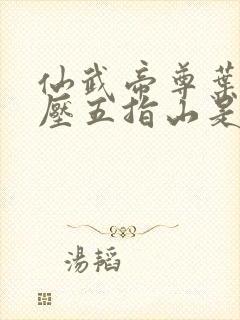 仙武帝尊葉
壓五指山是
湯韜